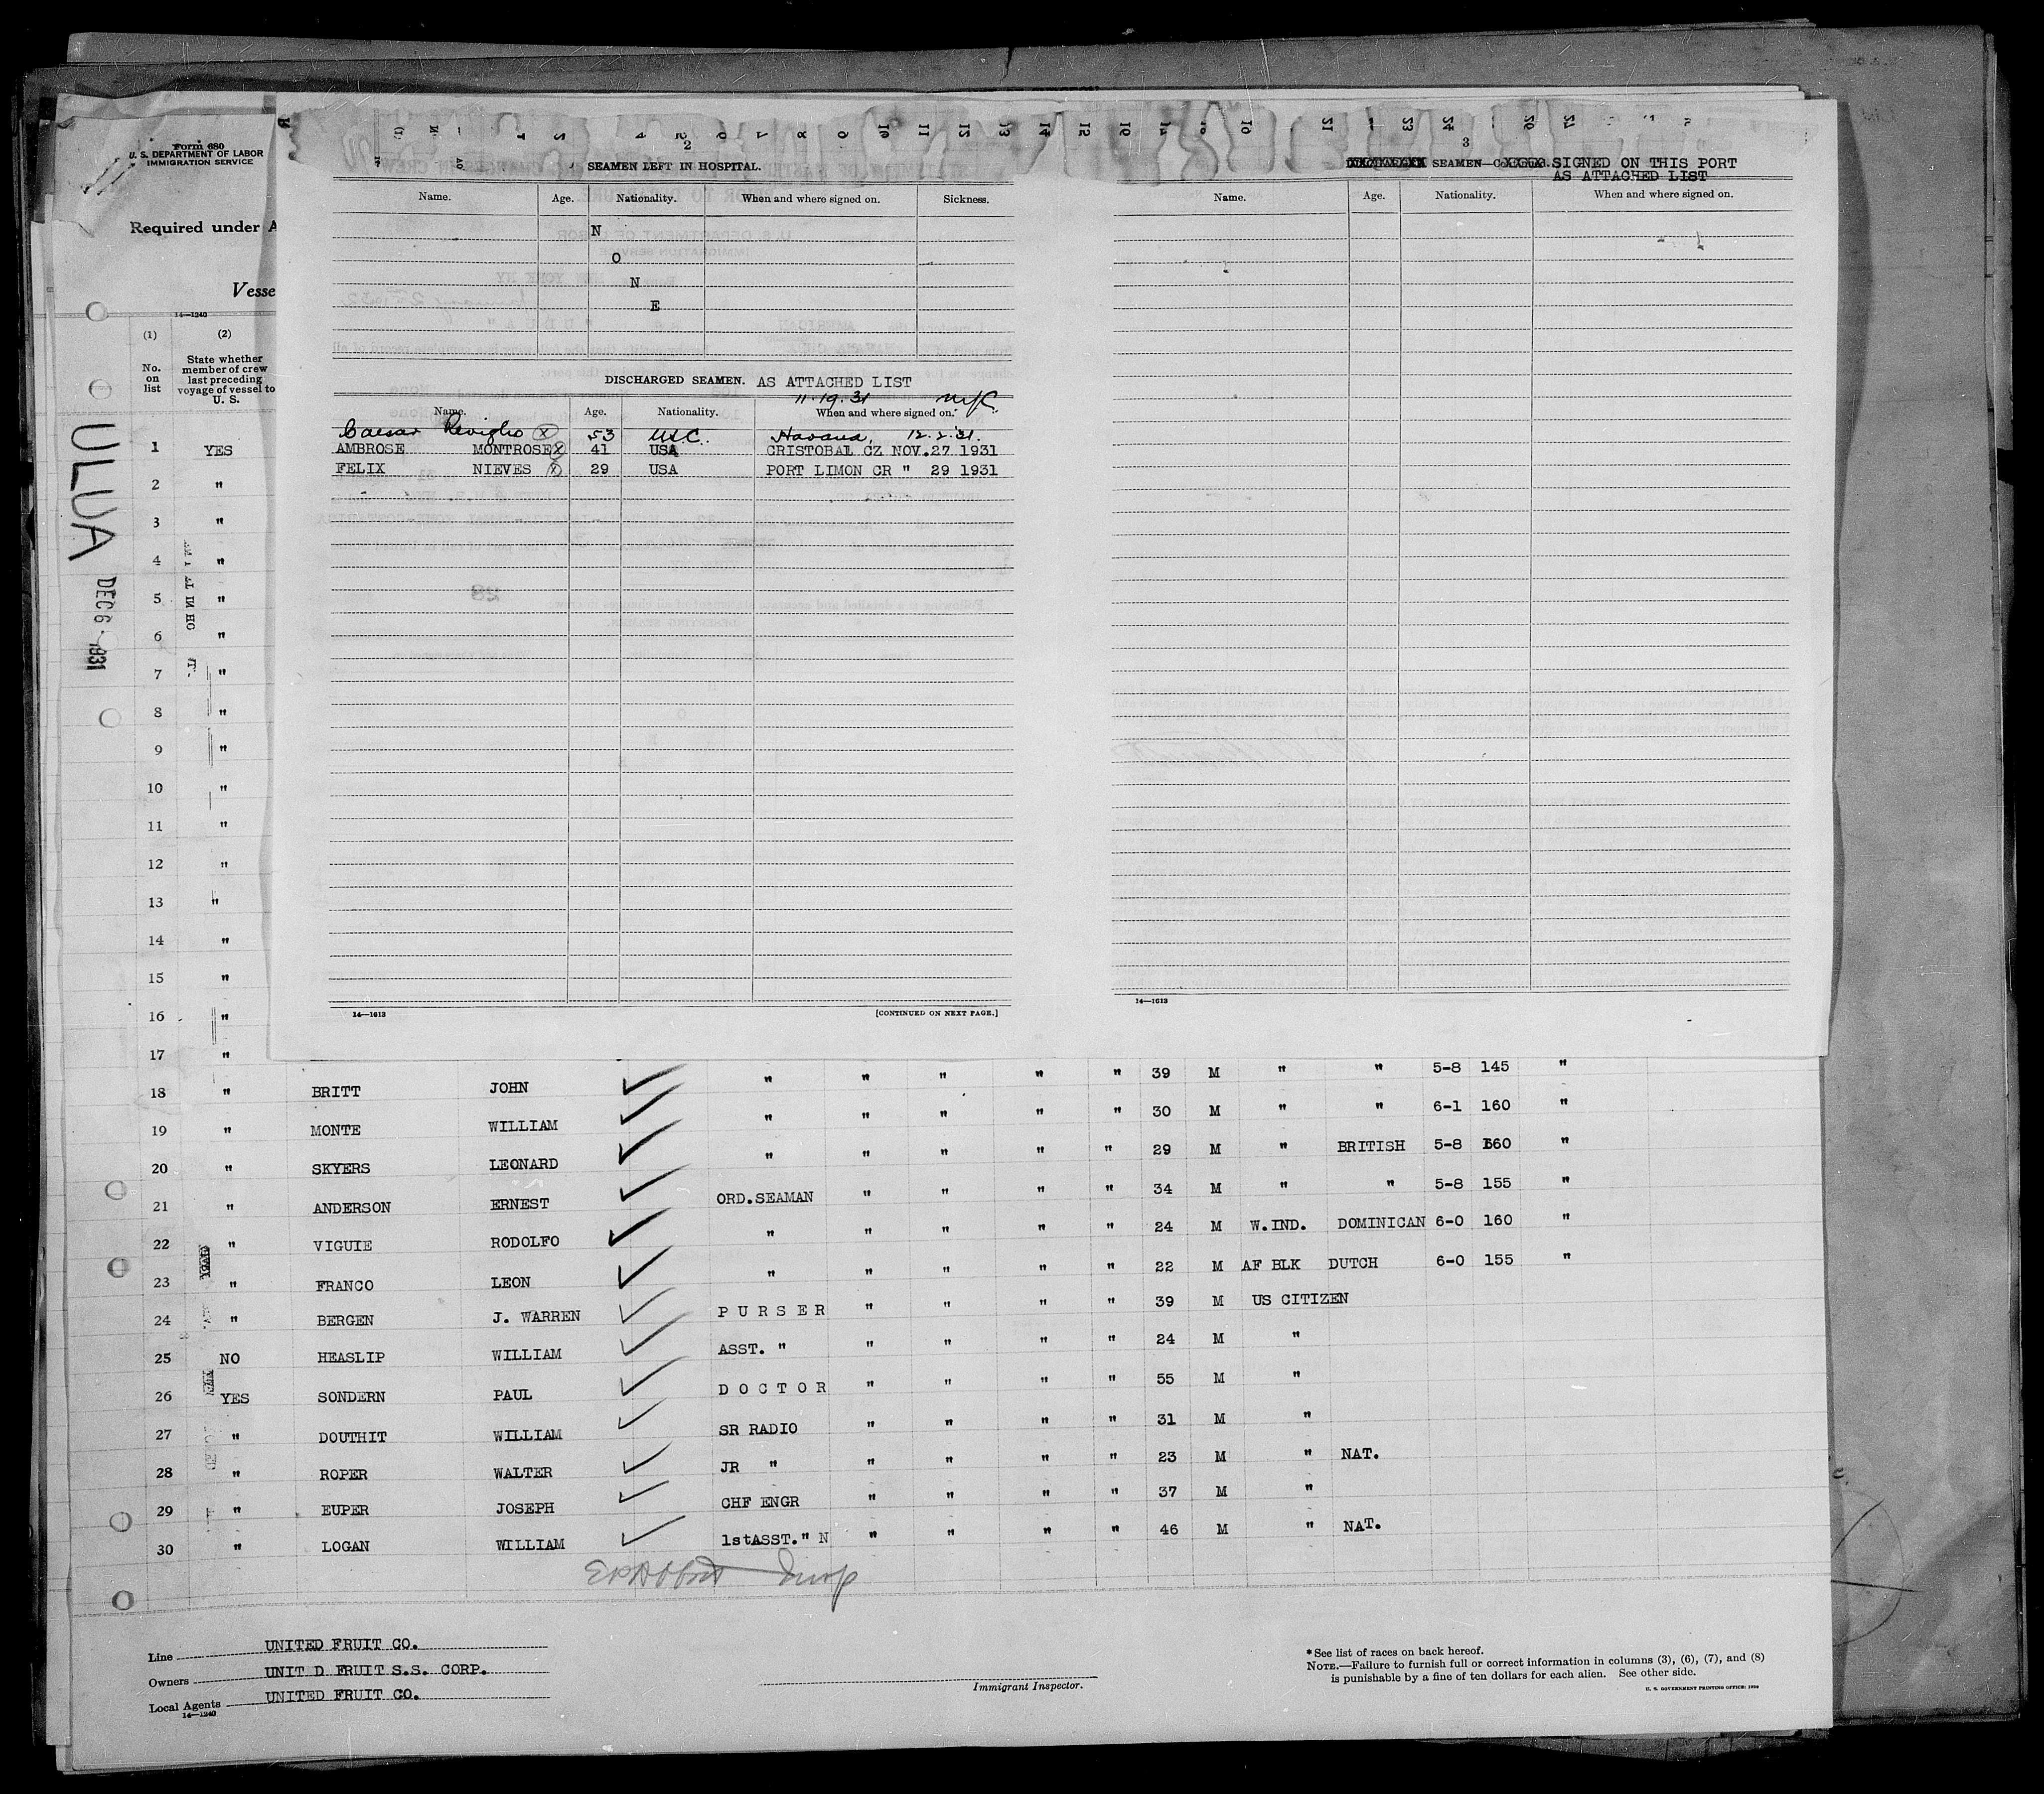 Form 680
U. S. DEPARTMENT OF LABOR
IMMIGRATION SERVICE
Required under A
Vesse
14—1240
(1) (2)
No. on list
State whether member of crew last preceding voyage of vessel to U. S.
ULUA
DEC 6 1931
1 YES
2 "
3 "
4 "
5 "
6 "
7 "
8 "
9 "
10 "
11 "
12 "
13 "
14 "
15 "
16 "
17 "
2
SEAMEN LEFT IN HOSPITAL.
Name. Age. Nationality. When and where signed on. Sickness.
N
O
N
E
DISCHARGED SEAMEN. AS ATTACHED LIST
11.19.31 NYC
Name. Age. Nationality. When and where signed on.
Caesar Reviglio X 53 U.S.C. Havana, 12.2.31.
AMBROSE MONTROSE X 41 USA CRISTOBAL CZ NOV.27 1931
FELIX NIEVES X 29 USA PORT LIMON CR " 29 1931
14—1613 [CONTINUED ON NEXT PAGE.]
3
SEAMEN—SIGNED ON THIS PORT
AS ATTACHED LIST
Name. Age. Nationality. When and where signed on.
14—1613
18 " BRITT JOHN " " " " " 39 M " " 5-8 145 "
19 " MONTE WILLIAM " " " " " 30 M " " 6-1 160 "
20 " SKYERS LEONARD " " " " " 29 M " BRITISH 5-8 160 "
21 " ANDERSON ERNEST ORD.SEAMAN " " " " 34 M " " 5-8 155 "
22 " VIGUIE RODOLFO " " " " " 24 M W.IND. DOMINICAN 6-0 160 "
23 " FRANCO LEON " " " " " 22 M AF BLK DUTCH 6-0 155 "
24 " BERGEN J. WARREN P U R S E R " " " " 39 M US CITIZEN
25 NO HEASLIP WILLIAM ASST. " " " " " 24 M "
26 YES SONDERN PAUL D O C T O R " " " " 55 M "
27 " DOUTHIT WILLIAM SR RADIO " " " " 31 M "
28 " ROPER WALTER JR " " " " " 23 M " NAT.
29 " EUPER JOSEPH CHF ENGR " " " " 37 M "
30 " LOGAN WILLIAM 1stASST." N " " " " 46 M " NAT.
Line UNITED FRUIT CO.
Owners UNIT D FRUIT S.S. CORP.
Local Agents UNITED FRUIT CO.
14—1240
Immigrant Inspector.
* See list of races on back hereof.
NOTE.—Failure to furnish full or correct information in columns (3), (6), (7), and (8)
is punishable by a fine of ten dollars for each alien. See other side.